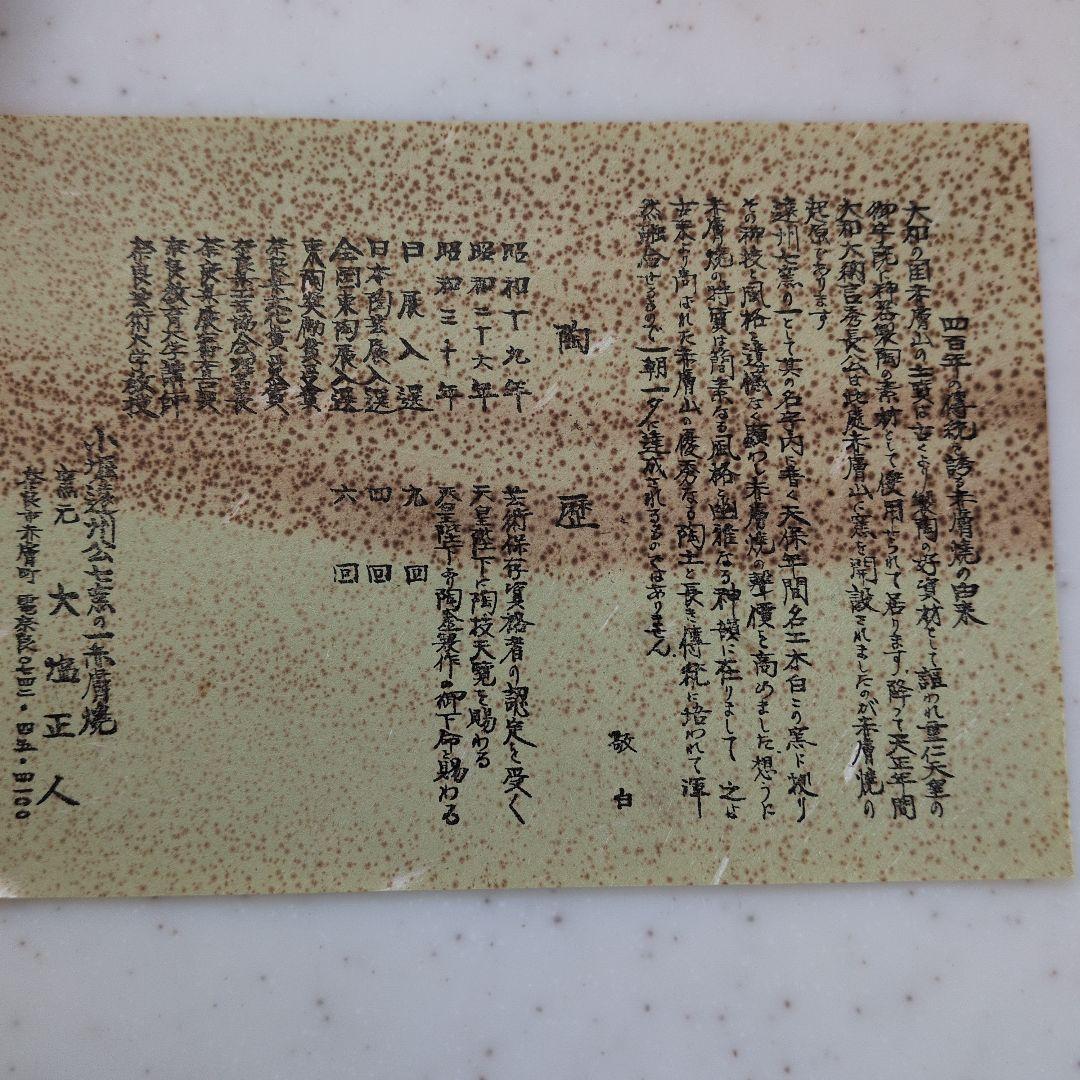 四百年の傳統を誇る赤膚焼の由来
大和の国赤膚山の土質は古くより製陶の好資材として謳われ垂仁天皇の
御年既に神器製陶の素材として使用せられて居ります 降つて天正年間
大和大納言秀長公は此處赤膚山に窯を開設されましたのが赤膚焼の
起源であります
遠州七窯の一として其の名宇内に喜く天保年間名工木白この窯に拠り
その御技と風格を遺憾なく顕わし赤膚焼の聲價を高めました 想うに
赤膚焼の特質は簡素なる風格と幽雅なる神韻に在りまして 之は
古来より尚ばれた赤膚山の優秀なる陶土と長き傳統に培われて渾
然融合せるもので一朝一夕に達成されるものではありません
敬白
陶歴
昭和十九年 芸術保存資格者の認定を受く
昭和二十六年 天皇陛下に陶技天覧を賜わる
昭和三十年 天皇陛下より陶壺製作の御下命を賜わる
日展入選 九回
日本陶芸展入選 四回
全関東陶展入選 六回
東陶奨励賞受賞
奈良県文化賞受賞
奈良県工芸協会理事長
奈良県展審査員
奈良教育大学講師
奈良芸術大学教授
小堀遠州公七窯の一赤膚焼
窯元 大塩正人
奈良市赤膚町 電奈良〇七四二・四五・四一〇〇